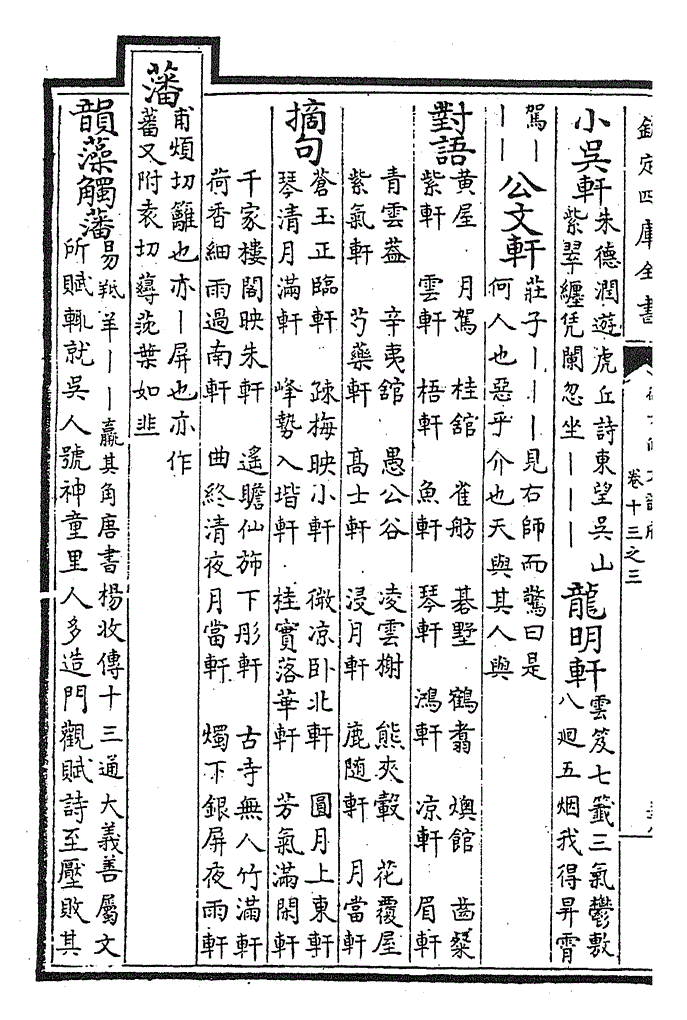 欽定四庫全書
卷十三之三
小吳軒朱德潤遊虎丘詩東望吳山
紫翠纏凭闌忽坐丨丨丨
龍明軒雲笈七籤三氣鬱敷
八廻五烟我得昇霄
駕丨
丨丨
公文軒莊子丨丨丨見右師而驚曰是
何人也惡乎介也天與其人與
對語
黃屋 月駕 桂館 雀舫 碁墅 鶴翥 燠館 齒粲
紫軒 雲軒 梧軒 魚軒 琴軒 鴻軒 凉軒 眉軒
青雲葢 辛夷館 愚公谷 凌雲榭 熊夾轂 花覆屋
紫氣軒 芍藥軒 高士軒 浸月軒 鹿随軒 月當軒
摘句
蒼玉正臨軒 疎梅映小軒 微凉卧北軒 圓月上東軒
琴清月滿軒 峰勢入堦軒 桂實落華軒 芳氣滿閑軒
千家樓閣映朱軒 遙瞻仙斾下彤軒 古寺無人竹滿軒
荷香細雨過南軒 曲終清夜月當軒 燭下銀屏夜雨軒
藩甫煩切籬也亦丨屏也亦作
蕃又附袁切䕪茂葉如韭
韻藻觸藩易羝羊丨丨羸其角唐書楊收傳十三通大義善屬文
所賦輒就吳人號神童里人多造門觀賦詩至壓敗其